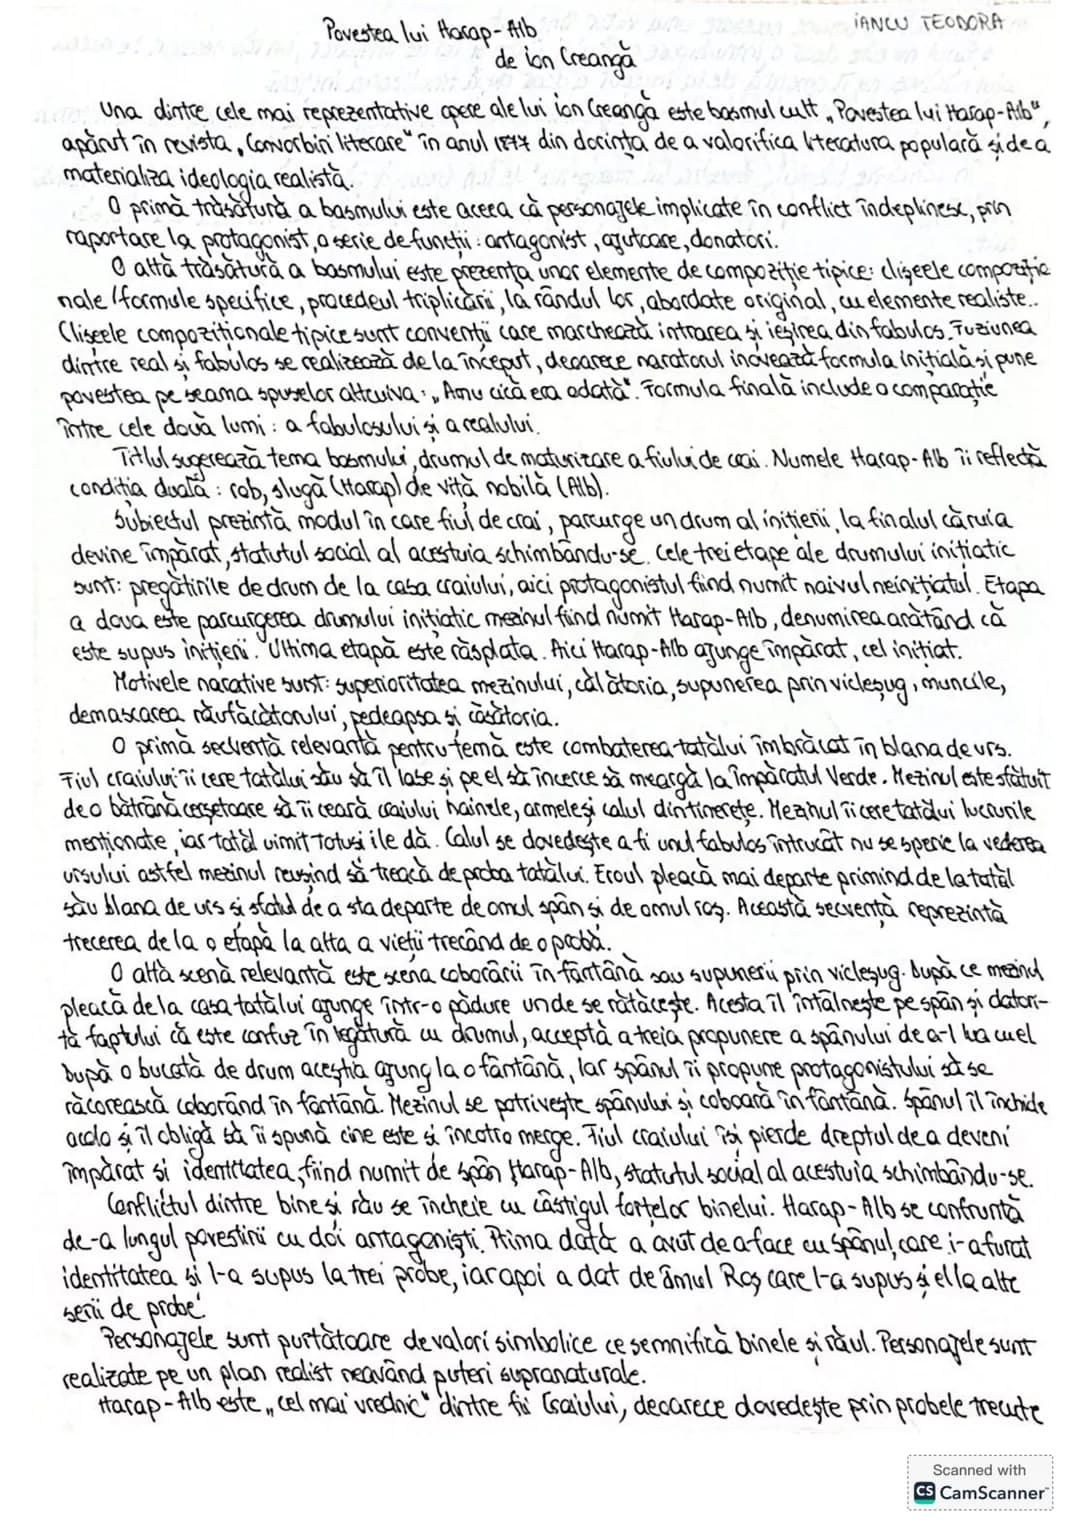 IANCU TEODORA
Povestea lui Harap-Alb
de Ion Creangă
Una dintre cele mai reprezentative opere ale lui Ion Creangă este basmul cult „Povestea lui Harap-Alb",
apărut în revista „Convorbiri literare" în anul 1877 din dorința de a valorifica literatura populară și de a
materializa ideologia realistă.
O primă trăsătură a basmului este aceea că personajele implicate în conflict îndeplinesc, prin
raportare la protagonist, o serie de funcții: antagonist, ajutoare, donatori.
O altă trăsătură a basmului este prezența unor elemente de compoziție tipice: clișeele compozițio
nale/formule specifice, procedeul triplicării, la rândul lor, abordate original, cu elemente realiste..
Clișeele compoziționale tipice sunt convenții care marchează intrarea și ieșirea din fabulos. Fuziunea
dintre real și fabulos se realizează de la început, deoarece naratorul inovează formula inițială și pune
povestea pe seama spuselor altcuiva: „Amu cică era odată". Formula finală include o comparație
între cele două lumi: a fabulosului și a realului.
Titlul sugerează tema basmului, drumul de maturizare a fiului de crai. Numele Harap-Alb îi reflectă
condiția duală: rob, slugă (Harap) de viță nobilă (Alb).
Subiectul prezintă modul în care fiul de crai, parcurge un drum al inițierii, la finalul căruia
devine împărat, statutul social al acestuia schimbându-se. Cele trei etape ale drumului inițiatic
sunt: pregătirile de drum de la casa craiului, aici protagonistul fiind numit naivul neinițiatul. Etapa
a doua este parcurgerea drumului inițiatic mezinul fiind numit Harap-Alb, denumirea arătând că
este supus inițierii. Ultima etapă este răsplata. Aici Harap-Alb ajunge împărat, cel inițiat.
Motivele narative sunt: superioritatea mezinului, călătoria, supunerea prin vicleșug, muncile,
demascarea răufăcătorului, pedeapsa și căsătoria.
O primă secvență relevantă pentru temă este combaterea tatălui îmbrăcat în blana de urs.
Fiul craiului îi cere tatălui său să îl lase și pe el să încerce să meargă la împăratul Verde. Mezinul este sfătuit
de o bătrână cerșetoare să îi ceară craiului hainele, armele și calul din tinerețe. Mezinul îi cere tatălui lucrurile
menționate, iar tatăl uimit totuși i le dă. Calul se dovedește a fi unul fabulos întrucât nu se sperie la vederea
ursului astfel mezinul reușind să treacă de proba tatălui. Eroul pleacă mai departe primind de la tatăl
său blana de urs și sfatul de a sta departe de omul spân și de omul roș. Această secvență reprezintă
trecerea de la o etapă la alta a vieții trecând de o probă.
O altă scenă relevantă este scena coborârii în fântână sau supunerii prin vicleșug. După ce mezinul
pleacă de la casa tatălui ajunge într-o pădure unde se rătăcește. Acesta îl întâlnește pe spân și datori-
tă faptului că este confuz în legătură cu drumul, acceptă a treia propunere a spânului de a-l lua cu el
După o bucată de drum aceștia ajung la o fântână, iar spânul îi propune protagonistului să se
răcorească coborând în fântână. Mezinul se potrivește spânului și coboară în fântână. Spânul îl închide
acolo și îl obligă să îi spună cine este și încotro merge. Fiul craiului își pierde dreptul de a deveni
împărat si identitatea, fiind numit de spân Harap-Alb, statutul social al acestuia schimbându-se.
Conflictul dintre bine și rău se încheie cu câștigul forțelor binelui. Harap-Alb se confruntă
de-a lungul povestirii cu doi antagoniști. Prima dată a avut de a face cu spânul, care i-a furat
identitatea și l-a supus la trei probe, iar apoi a dat de omul Roș care l-a supus și el la alte
serii de probe.
Personajele sunt purtătoare de valori simbolice ce semnifică binele și răul. Personajele sunt
realizate pe un plan realist neavând puteri supranaturale.
Harap-Alb este „cel mai vrednic" dintre fii Craiului, deoarece dovedește prin probele trecute
Scanned with
CS CamScanner